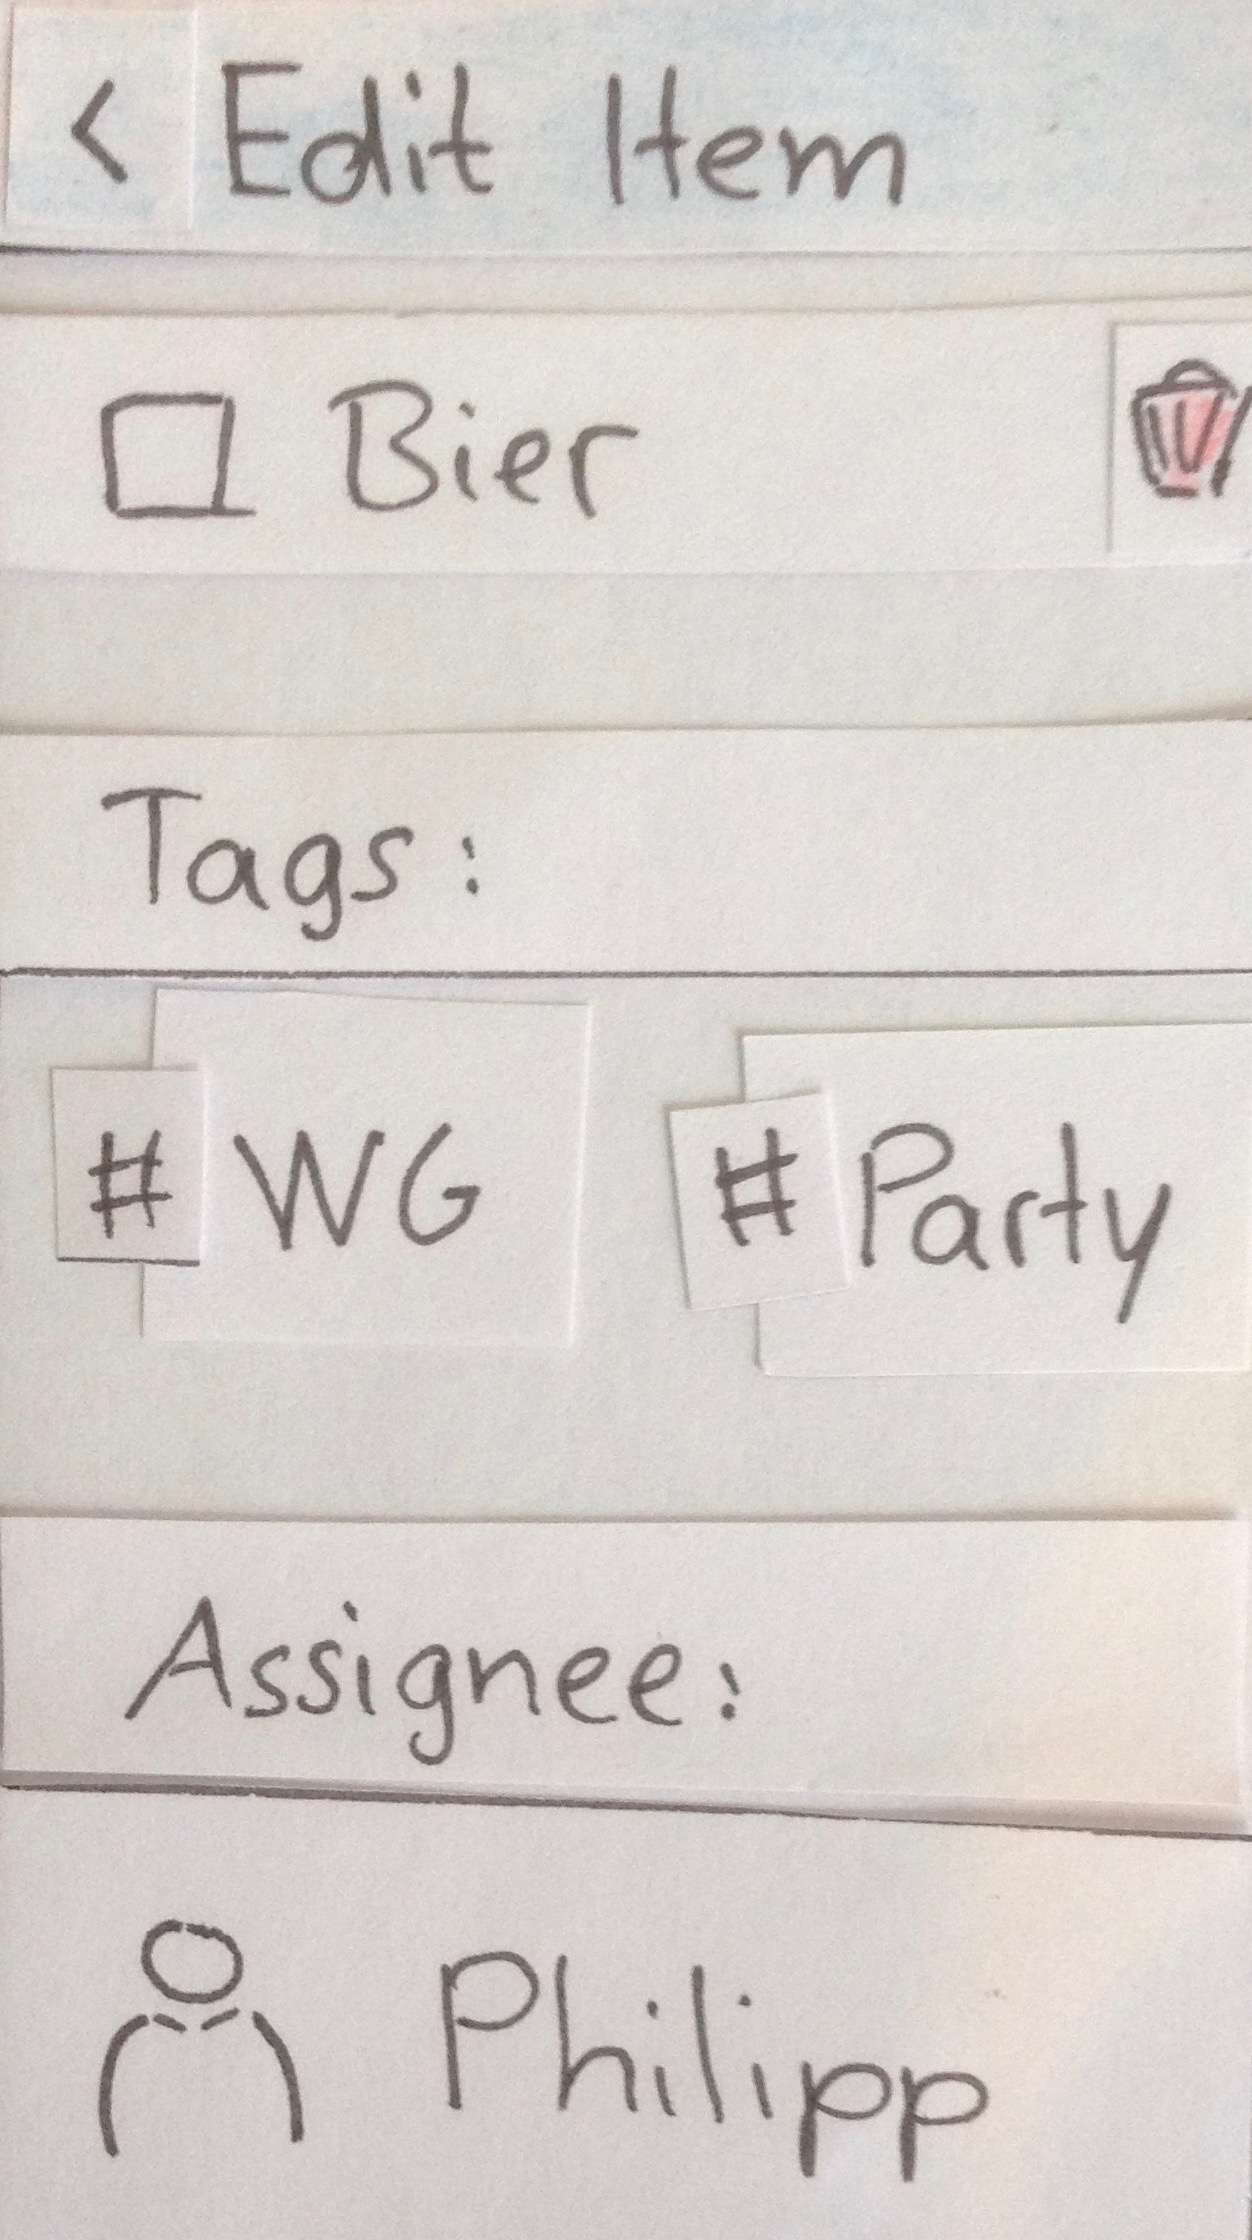 < Edit Item
Bier
Tags:
# WG # Party
Assignee:
Philipp